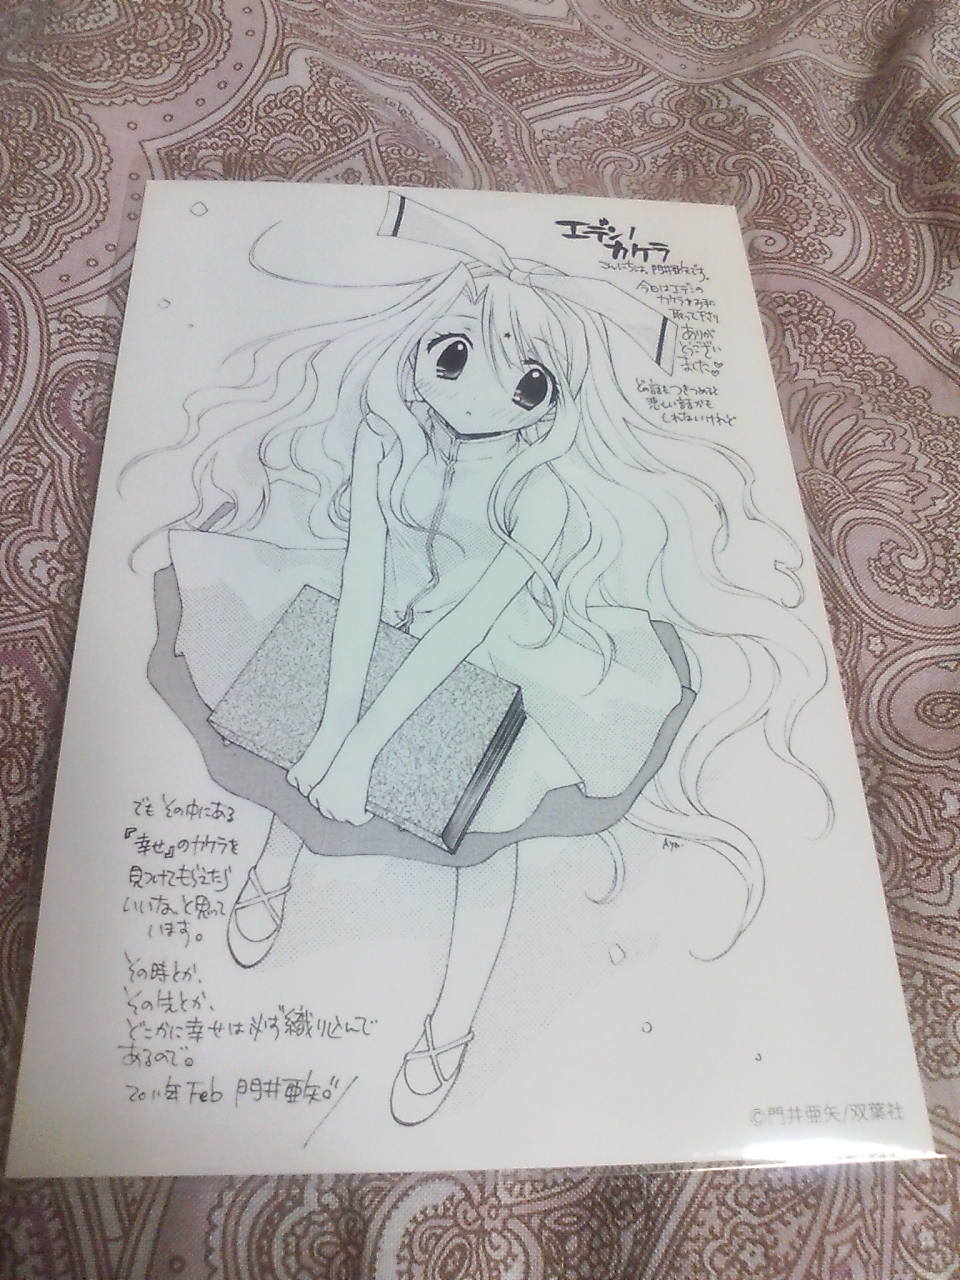 エデンノ
カケラ
こんにちは、門井亜矢です。
今日はエデンの
カケラをお手に
取って下さり
ありが
とうござい
ました♡
どの話もつきつめると
悲しい話かも
しれないけれど
でも その中にある
『幸せ』のカケラを
見つけてもらえたら
いいな、と思って
います。
その時とか、
その先とか、
どこかに幸せは必ず織り込んで
あるので。
2011年 Feb 門井亜矢。
Aya.
©門井亜矢/双葉社